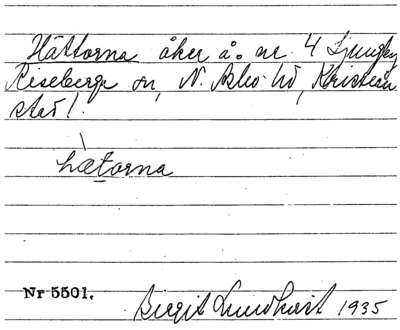 Hättorna åker å. nr. 4 Ljungby
Riseberga sn, N. Åsbo hd, Kristian
stad l.
hætorna
Nr 5501.
Birgit Lundkvist 1935